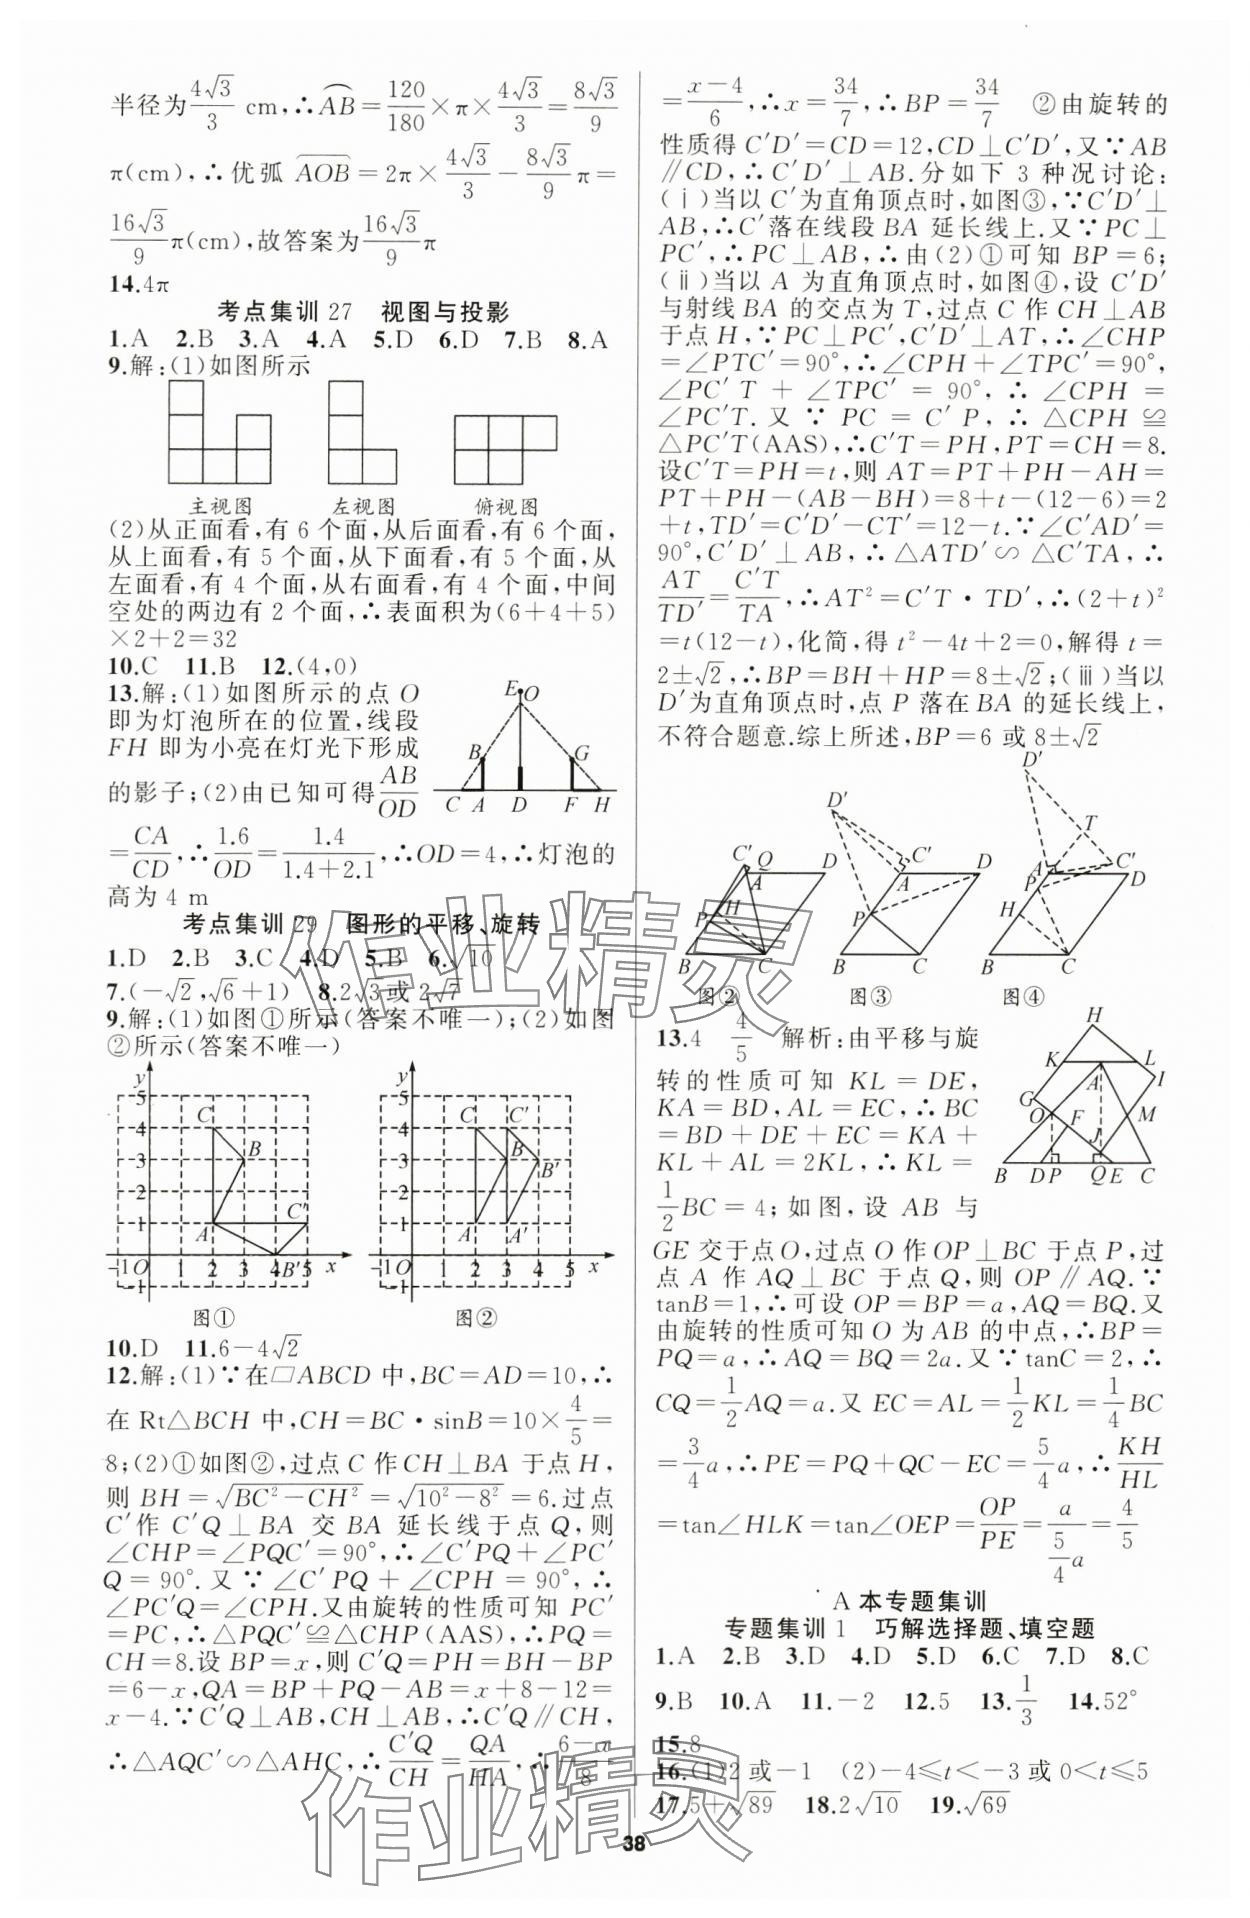 半径为4√3/3 cm,∴⌒AB=120/180×π×4√3/3=8√3/9
π(cm),∴优弧 ⌒AOB=2π×4√3/3-8√3/9π=
16√3/9π(cm),故答案为16√3/9π
14.4π
考点集训27 视图与投影
1.A 2.B 3.A 4.A 5.D 6.D 7.B 8.A
9.解:(1)如图所示
主视图 左视图 俯视图
(2)从正面看,有6个面,从后面看,有6个面,
从上面看,有5个面,从下面看,有5个面,从
左面看,有4个面,从右面看,有4个面,中间
空处的两边有2个面,∴表面积为(6+4+5)
×2+2=32
10.C 11.B 12.(4,0)
13.解:(1)如图所示的点O
即为灯泡所在的位置,线段
FH即为小亮在灯光下形成
的影子;(2)由已知可得AB/OD
E O B G C A D F H
=CA/CD,∴1.6/OD=1.4/(1.4+2.1),∴OD=4,∴灯泡的
高为4 m
考点集训29 图形的平移、旋转
1.D 2.B 3.C 4.D 5.B 6.√10
7.(-√2,√6+1) 8.2√3或2√7
9.解:(1)如图①所示(答案不唯一);(2)如图
②所示(答案不唯一)
y 5 4 3 2 1 -1 C B A C′ B′ -1 O 1 2 3 4 5 x
图①
y 5 4 3 2 1 -1 C C′ B B′ A A′ -1 O 1 2 3 4 5 x
图②
10.D 11.6-4√2
12.解:(1)∵在▱ABCD中,BC=AD=10,∴
在Rt△BCH中,CH=BC·sinB=10×4/5=
8;(2)①如图②,过点C作CH⊥BA于点H,
则BH=√(BC²-CH²)=√(10²-8²)=6.过点
C′作C′Q⊥BA交BA延长线于点Q,则
∠CHP=∠PQC′=90°,∴∠C′PQ+∠PC′
Q=90°.又∵∠C′PQ+∠CPH=90°,∴
∠PC′Q=∠CPH.又由旋转的性质可知PC′
=PC,∴△PQC′≌△CHP(AAS),∴PQ=
CH=8.设BP=x,则C′Q=PH=BH-BP
=6-x,QA=BP+PQ-AB=x+8-12=
x-4.∵C′Q⊥AB,CH⊥AB,∴C′Q∥CH,
∴△AQC′∽△AHC,∴C′Q/CH=QA/HA,∴(6-x)/8
=(x-4)/6,∴x=34/7,∴BP=34/7 ②由旋转的
性质得C′D′=CD=12,CD⊥C′D′,又∵AB
∥CD,∴C′D′⊥AB.分如下3种况讨论:
(ⅰ)当以C′为直角顶点时,如图③,∵C′D′⊥
AB,∴C′落在线段BA延长线上.又∵PC⊥
PC′,∴PC⊥AB,∴由(2)①可知BP=6;
(ⅱ)当以A为直角顶点时,如图④,设C′D′
与射线BA的交点为T,过点C作CH⊥AB
于点H,∵PC⊥PC′,C′D′⊥AT,∴∠CHP
=∠PTC′=90°,∴∠CPH+∠TPC′=90°,
∠PC′T+∠TPC′=90°,∴∠CPH=
∠PC′T.又∵PC=C′P,∴△CPH≌
△PC′T(AAS),∴C′T=PH,PT=CH=8.
设C′T=PH=t,则AT=PT+PH-AH=
PT+PH-(AB-BH)=8+t-(12-6)=2
+t,TD′=C′D′-CT′=12-t.∵∠C′AD′=
90°,C′D′⊥AB,∴△ATD′∽△C′TA,∴
AT/TD′=C′T/TA,∴AT²=C′T·TD′,∴(2+t)²
=t(12-t),化简,得t²-4t+2=0,解得t=
2±√2,∴BP=BH+HP=8±√2;(ⅲ)当以
D′为直角顶点时,点P落在BA的延长线上,
不符合题意.综上所述,BP=6或8±√2
C′ Q D A H P B C
图②
D′ C′ D A P B C
图③
D′ T C′ A P D H B C
图④
13.4 4/5 解析:由平移与旋
转的性质可知KL=DE,
KA=BD,AL=EC,∴BC
=BD+DE+EC=KA+
KL+AL=2KL,∴KL=
1/2BC=4;如图,设AB与
H K L A I G O F M J B D P Q E C
GE交于点O,过点O作OP⊥BC于点P,过
点A作AQ⊥BC于点Q,则OP∥AQ.∵
tanB=1,∴可设OP=BP=a,AQ=BQ.又
由旋转的性质可知O为AB的中点,∴BP=
PQ=a,∴AQ=BQ=2a.又∵tanC=2,∴
CQ=1/2AQ=a.又EC=AL=1/2KL=1/4BC
=3/4a,∴PE=PQ+QC-EC=5/4a,∴KH/HL
=tan∠HLK=tan∠OEP=OP/PE=a/(5/4a)=4/5
A本专题集训
专题集训1 巧解选择题、填空题
1.A 2.B 3.D 4.D 5.D 6.C 7.D 8.C
9.B 10.A 11.-2 12.5 13.1/3 14.52°
15.8
16.(1)2或-1 (2)-4≤t<-3或0<t≤5
17.5+√89 18.2√10 19.√69
38
作业精灵
作业精灵